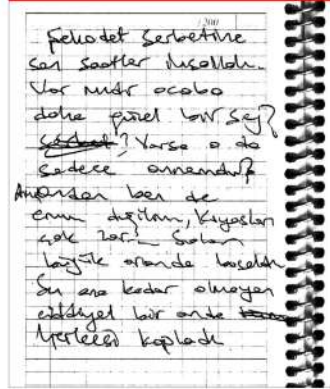 1200
Şehadet şerbetine
son saatler inşallah.
Var mıdır acaba
daha güzel bir şey?
? Varsa o da
sadece annemdir?
Annemden ben de
emin değilim, Kıyaslan
çok zor?
büyük oranda
Şu ana kadar olmayan
ciddiyet bir anda
herkesi kapladı